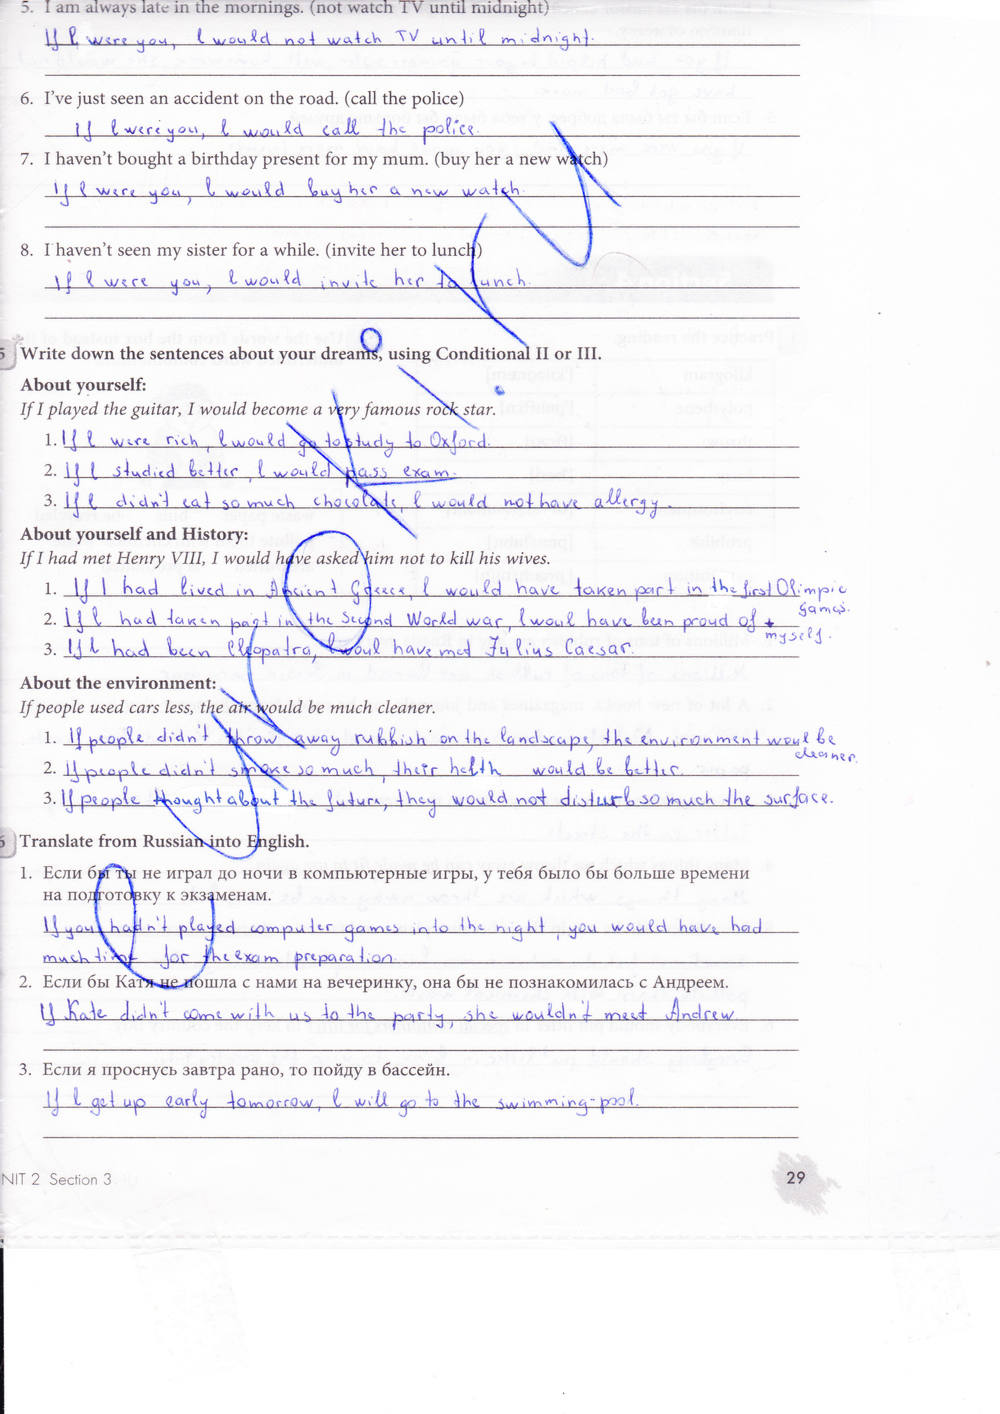 5. I am always late in the mornings. (not watch TV until midnight)
If I were you, I would not watch TV until midnight.
6. I've just seen an accident on the road. (call the police)
If I were you, I would call the police.
7. I haven't bought a birthday present for my mum. (buy her a new watch)
If I were you, I would buy her a new watch.
8. I haven't seen my sister for a while. (invite her to lunch)
If I were you, I would invite her to lunch.
5 Write down the sentences about your dreams, using Conditional II or III.
About yourself:
If I played the guitar, I would become a very famous rock star.
1. If I were rich, I would go to study to Oxford.
2. If I studied better, I would pass exam.
3. If I didn't eat so much chocolate, I would not have allergy.
About yourself and History:
If I had met Henry VIII, I would have asked him not to kill his wives.
1. If I had lived in Ancient Greece, I would have taken part in the first Olimpic
games.
2. If I had taken part in the Second World war, I woul have been proud of
myself.
3. If I had been Cleopatra, I woul have met Julius Caesar.
About the environment:
If people used cars less, the air would be much cleaner.
1. If people didn't throw away rubbish on the landscape, the environment woul be
cleaner.
2. If people didn't smoke so much, their helth would be better.
3. If people thought about the future, they would not disturb so much the surface.
6 Translate from Russian into English.
1. Если бы ты не играл до ночи в компьютерные игры, у тебя было бы больше времени
на подготовку к экзаменам.
If you hadn't played computer games into the night, you would have had
much time for the exam preparation.
2. Если бы Катя не пошла с нами на вечеринку, она бы не познакомилась с Андреем.
If Kate didn't come with us to the party, she wouldn't meet Andrew.
3. Если я проснусь завтра рано, то пойду в бассейн.
If I get up early tomorrow, I will go to the swimming-pool.
NIT 2 Section 3
29